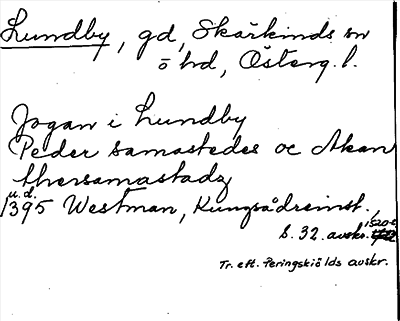 Lundby, gd, Skärkinds sn
ö hd, Österg. l.
Jogan i Lundby
Peder samastedes oc Akan
thersamastadz
u.d.
1395 Westman, Kungsådreinst.
s. 32. avskr. 1520-t.
Tr. eft. Peringskiölds avskr.